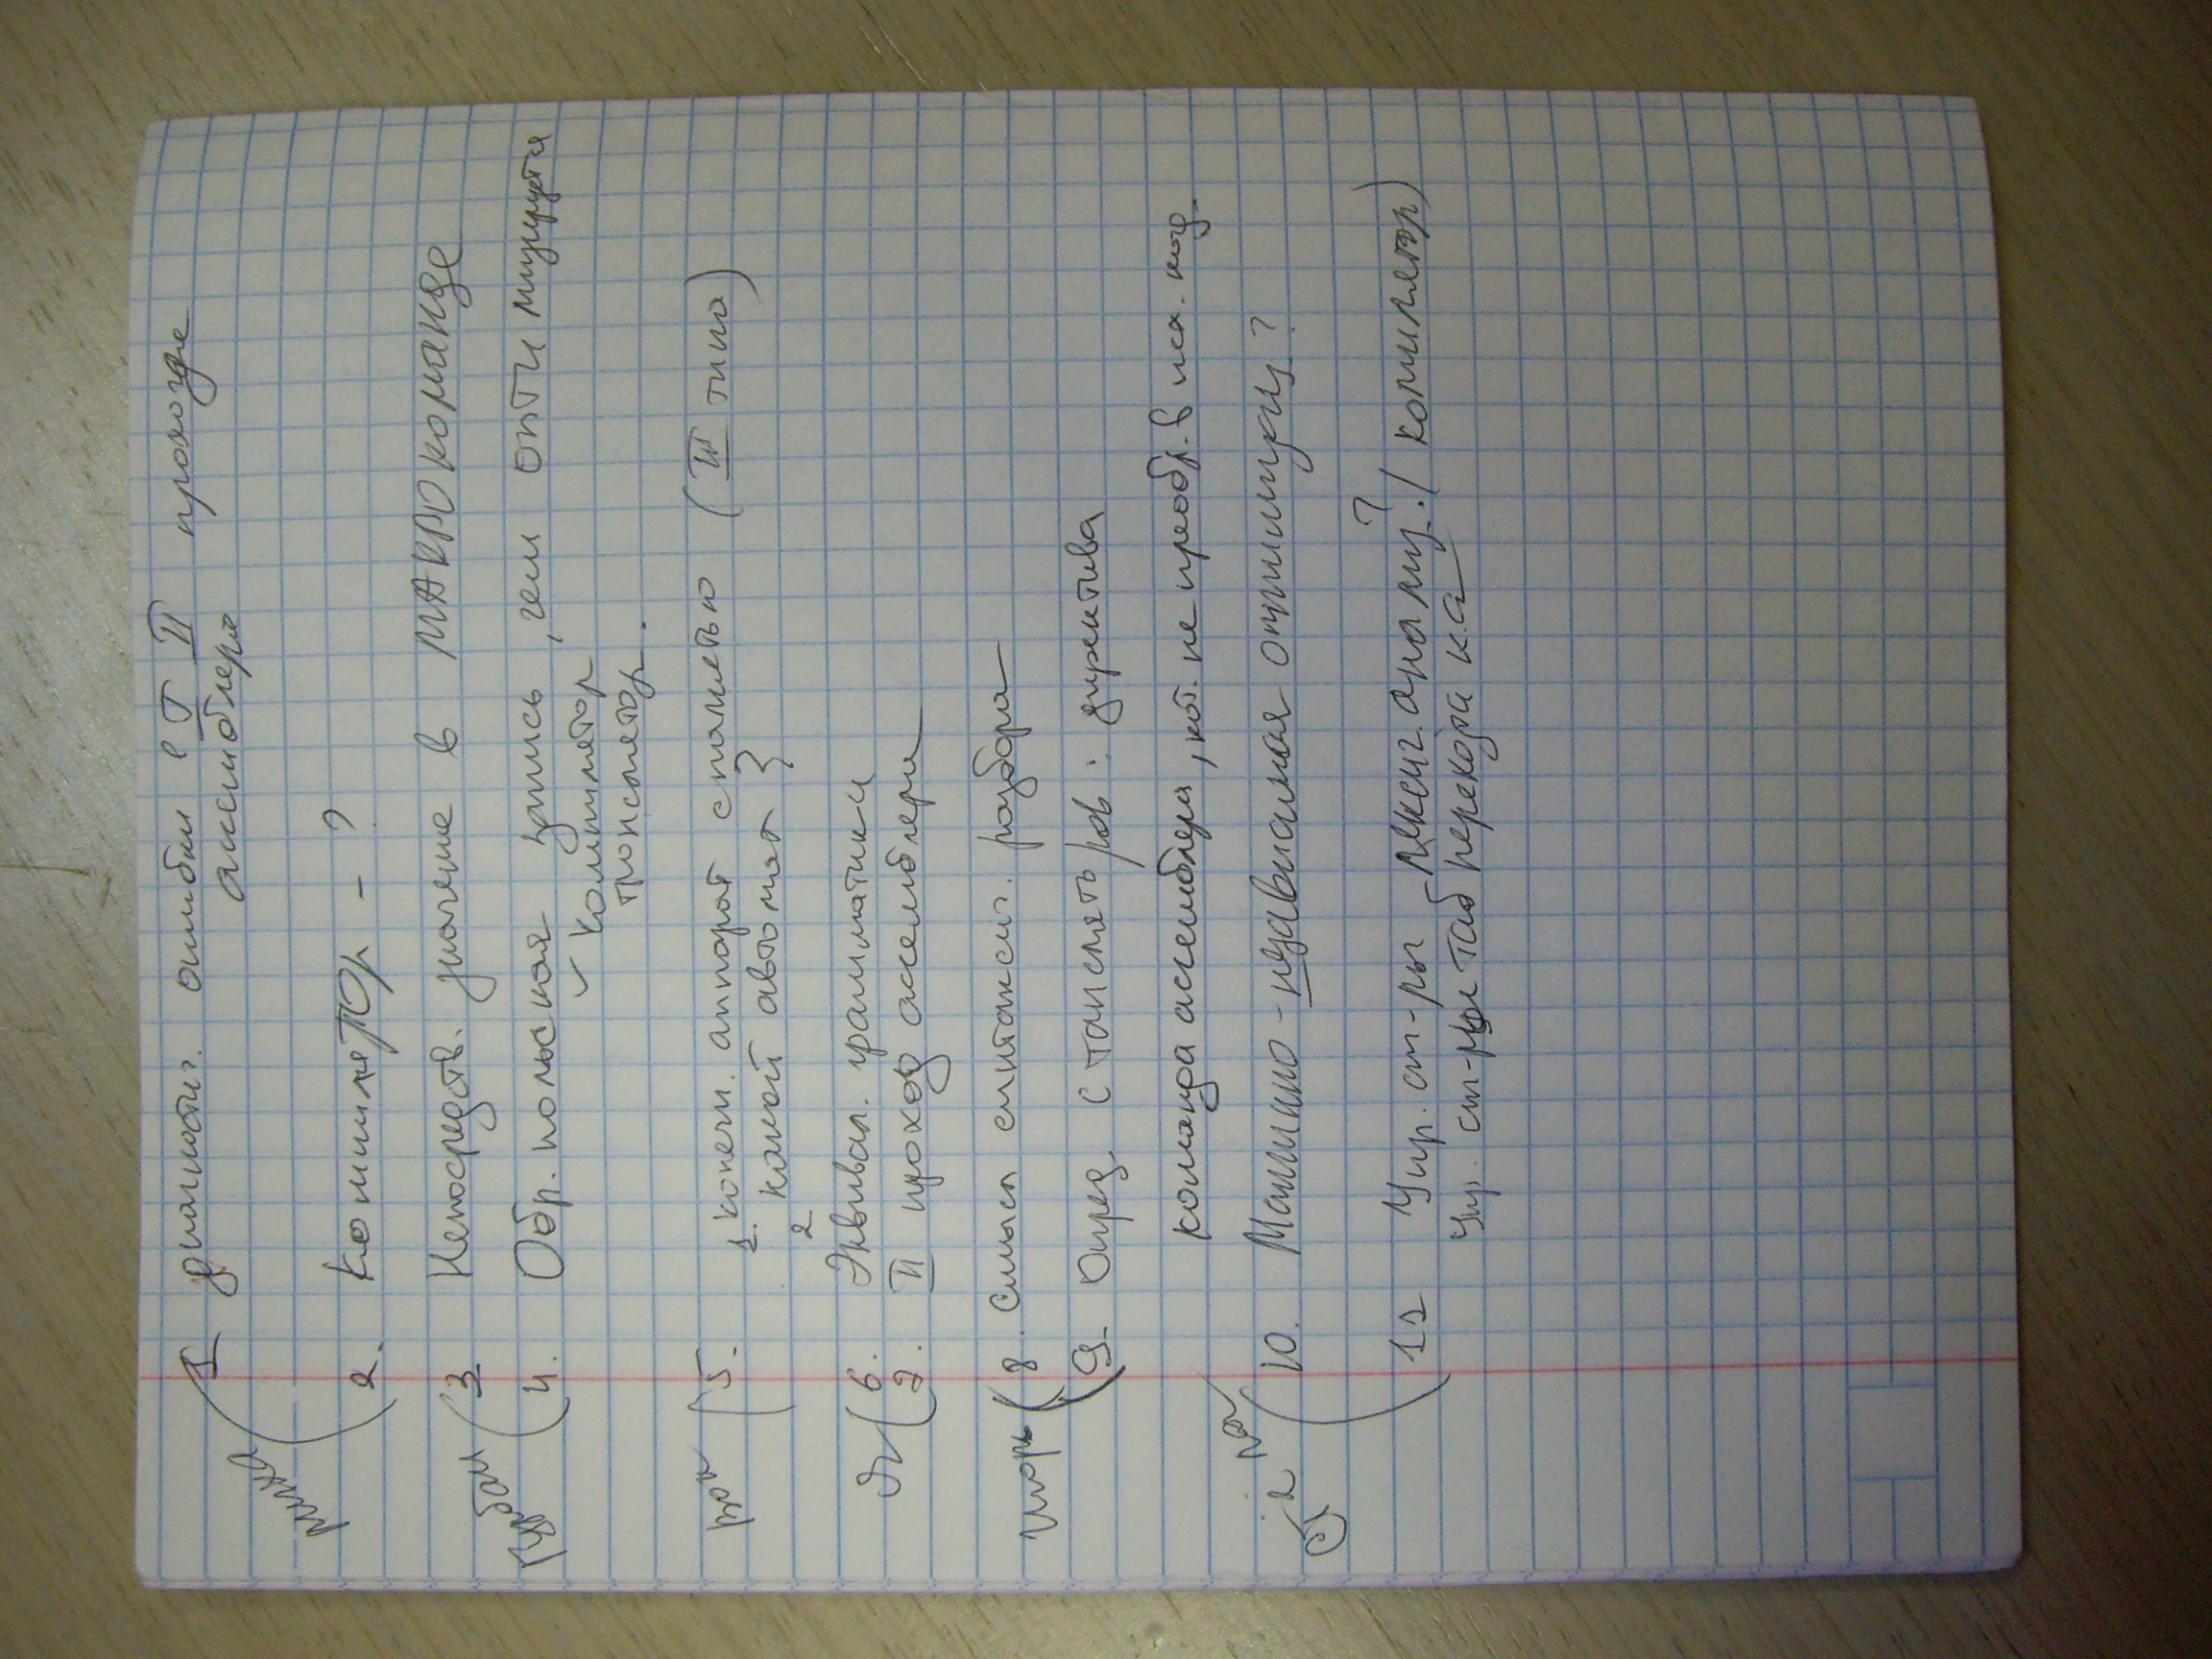 1 диагностич. ошибки в I II проходе
ассемблера
2. КомпиляТОр - ?
3 Непосредств. значение в МАКРОкоманде
4. Обр. польская запись, чем оптимизируется
✓ компилятор
транслятор.
5. 1. конечн. аппарат с памятью (III типа)
2 какой автомат }
6. Эквивал. грамматики
7. II проход ассемблера
Игорь 8. Смысл синтаксич. разбора
9. Опред. Ставить рав: директива
команда ассемблера, кот. не преобр. в маш. код.
10. Машинно-независимая оптимизац?
11 Упр. ст-ры лексич. анализ.? (компилятор)
Упр. ст-ры таб перехода к.а